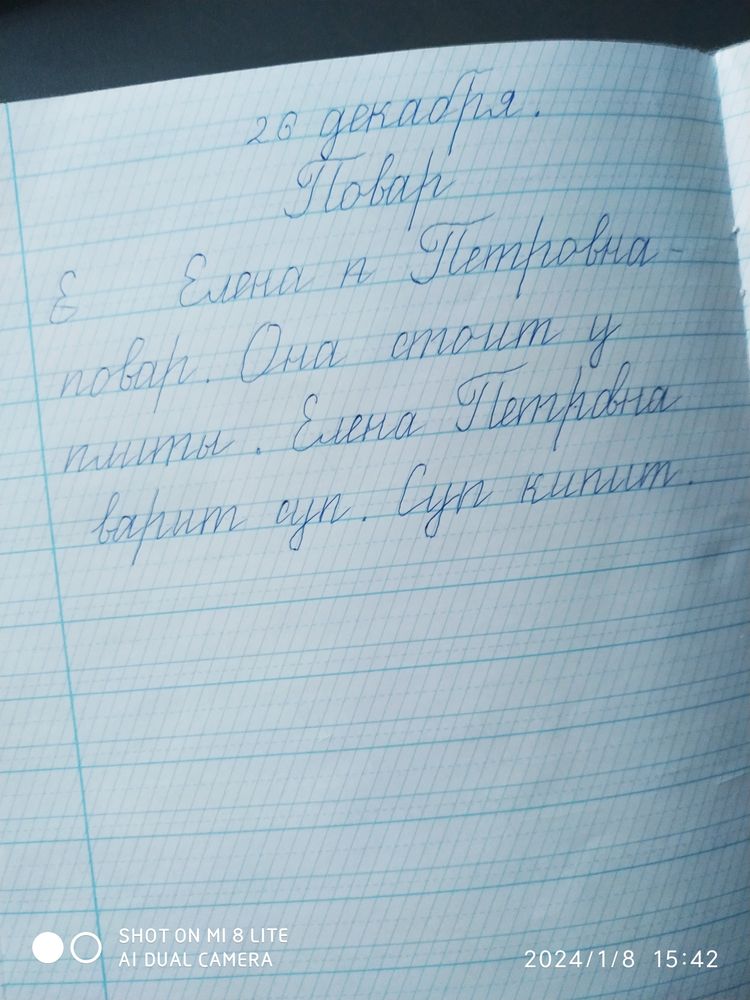 26 декабря.
Повар
Е Елена п Петровна-
повар. Она стоит у
плиты. Елена Петровна
варит суп. Суп кипит.
SHOT ON MI 8 LITE
AI DUAL CAMERA
2024/1/8 15:42